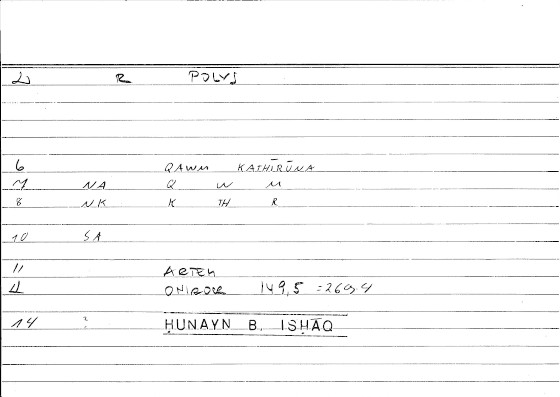 R POLVS
6 QAWM KATHĪRŪNA
7 NA Q W M
8 NK K TH R
10 SA
11 ARTEM
ONIROCR 149,5 = 269,4
14 ? ḤUNAYN B. ISḤĀQ